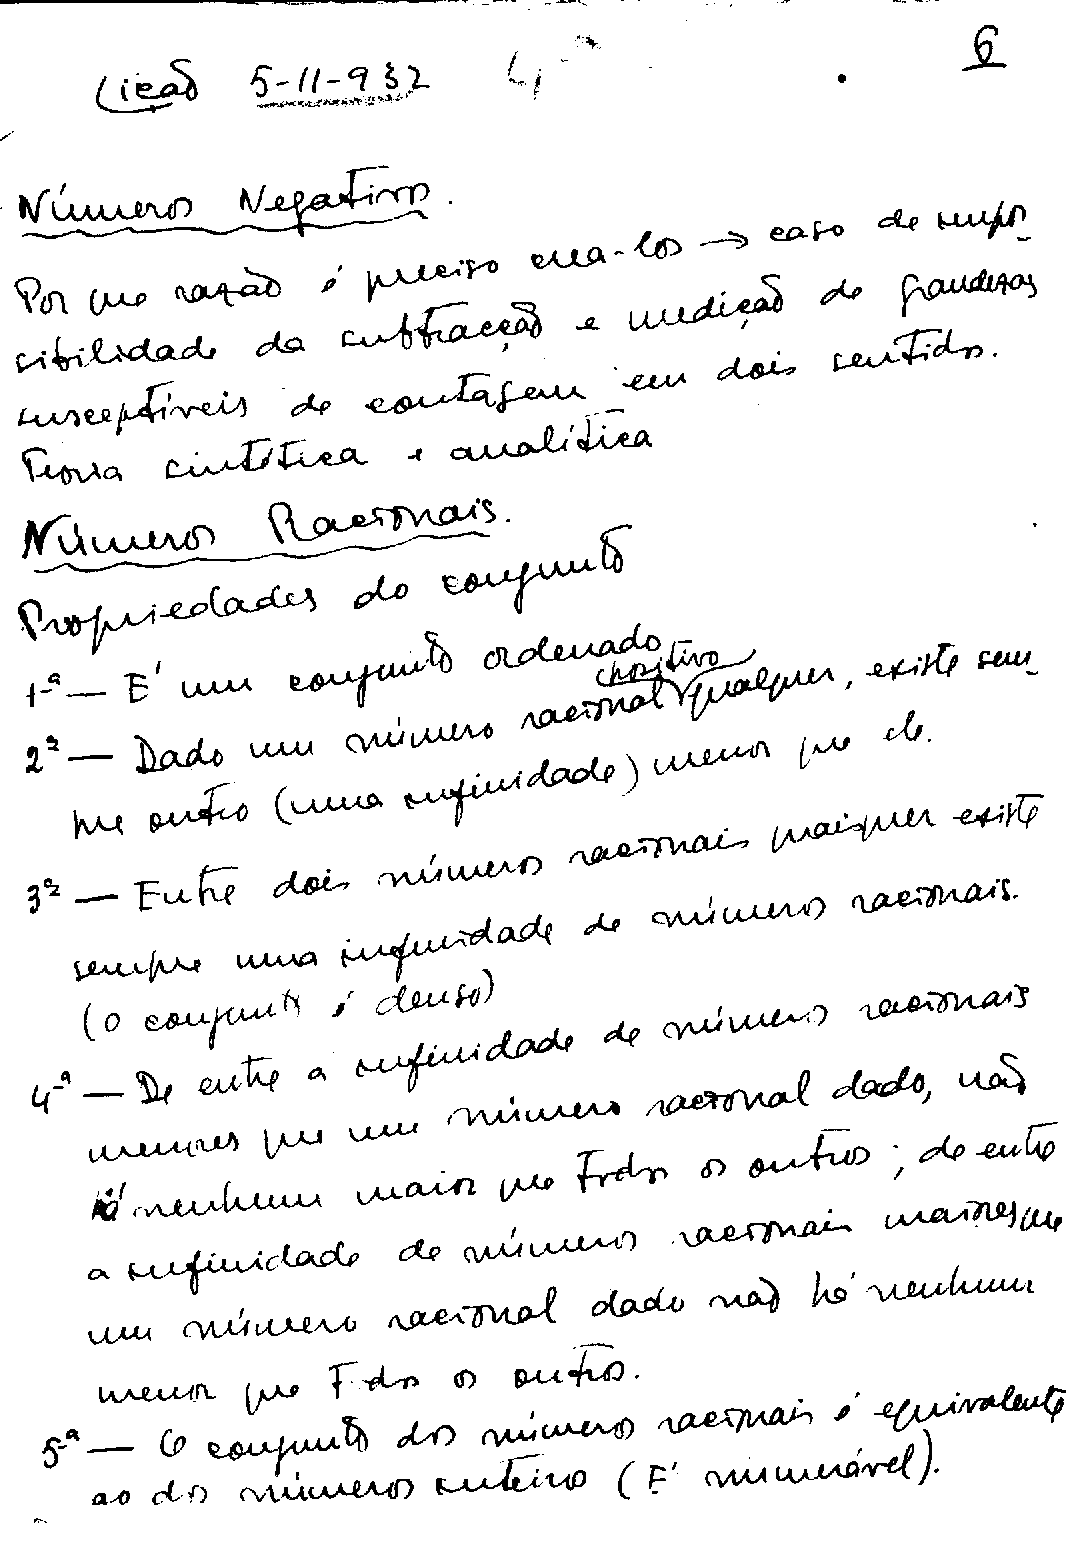 6
Lição 5-11-932 4ª
Números Negativos.
Por que razão é preciso crea-los → caso de impos-
sibilidade da subtracção e medição de grandezas
susceptíveis de contagem em dois sentidos.
Teoria sintética e analítica
Números Racionais.
Propriedades do conjunto
1ª — É um conjunto ordenado
positivo
2ª — Dado um número racional qualquer, existe sem-
pre outro (uma infinidade) menor que ele.
3ª — Entre dois números racionais quaisquer existe
sempre uma infinidade de números racionais.
(o conjunto é denso)
4ª — De entre a infinidade de números racionais
menores que um número racional dado, não
há nenhum maior que todos os outros; de entre
a infinidade de números racionais maiores que
um número racional dado não há nenhum
menor que todos os outros.
5ª — O conjunto dos números racionais é equivalente
ao dos números inteiros (É numerável).